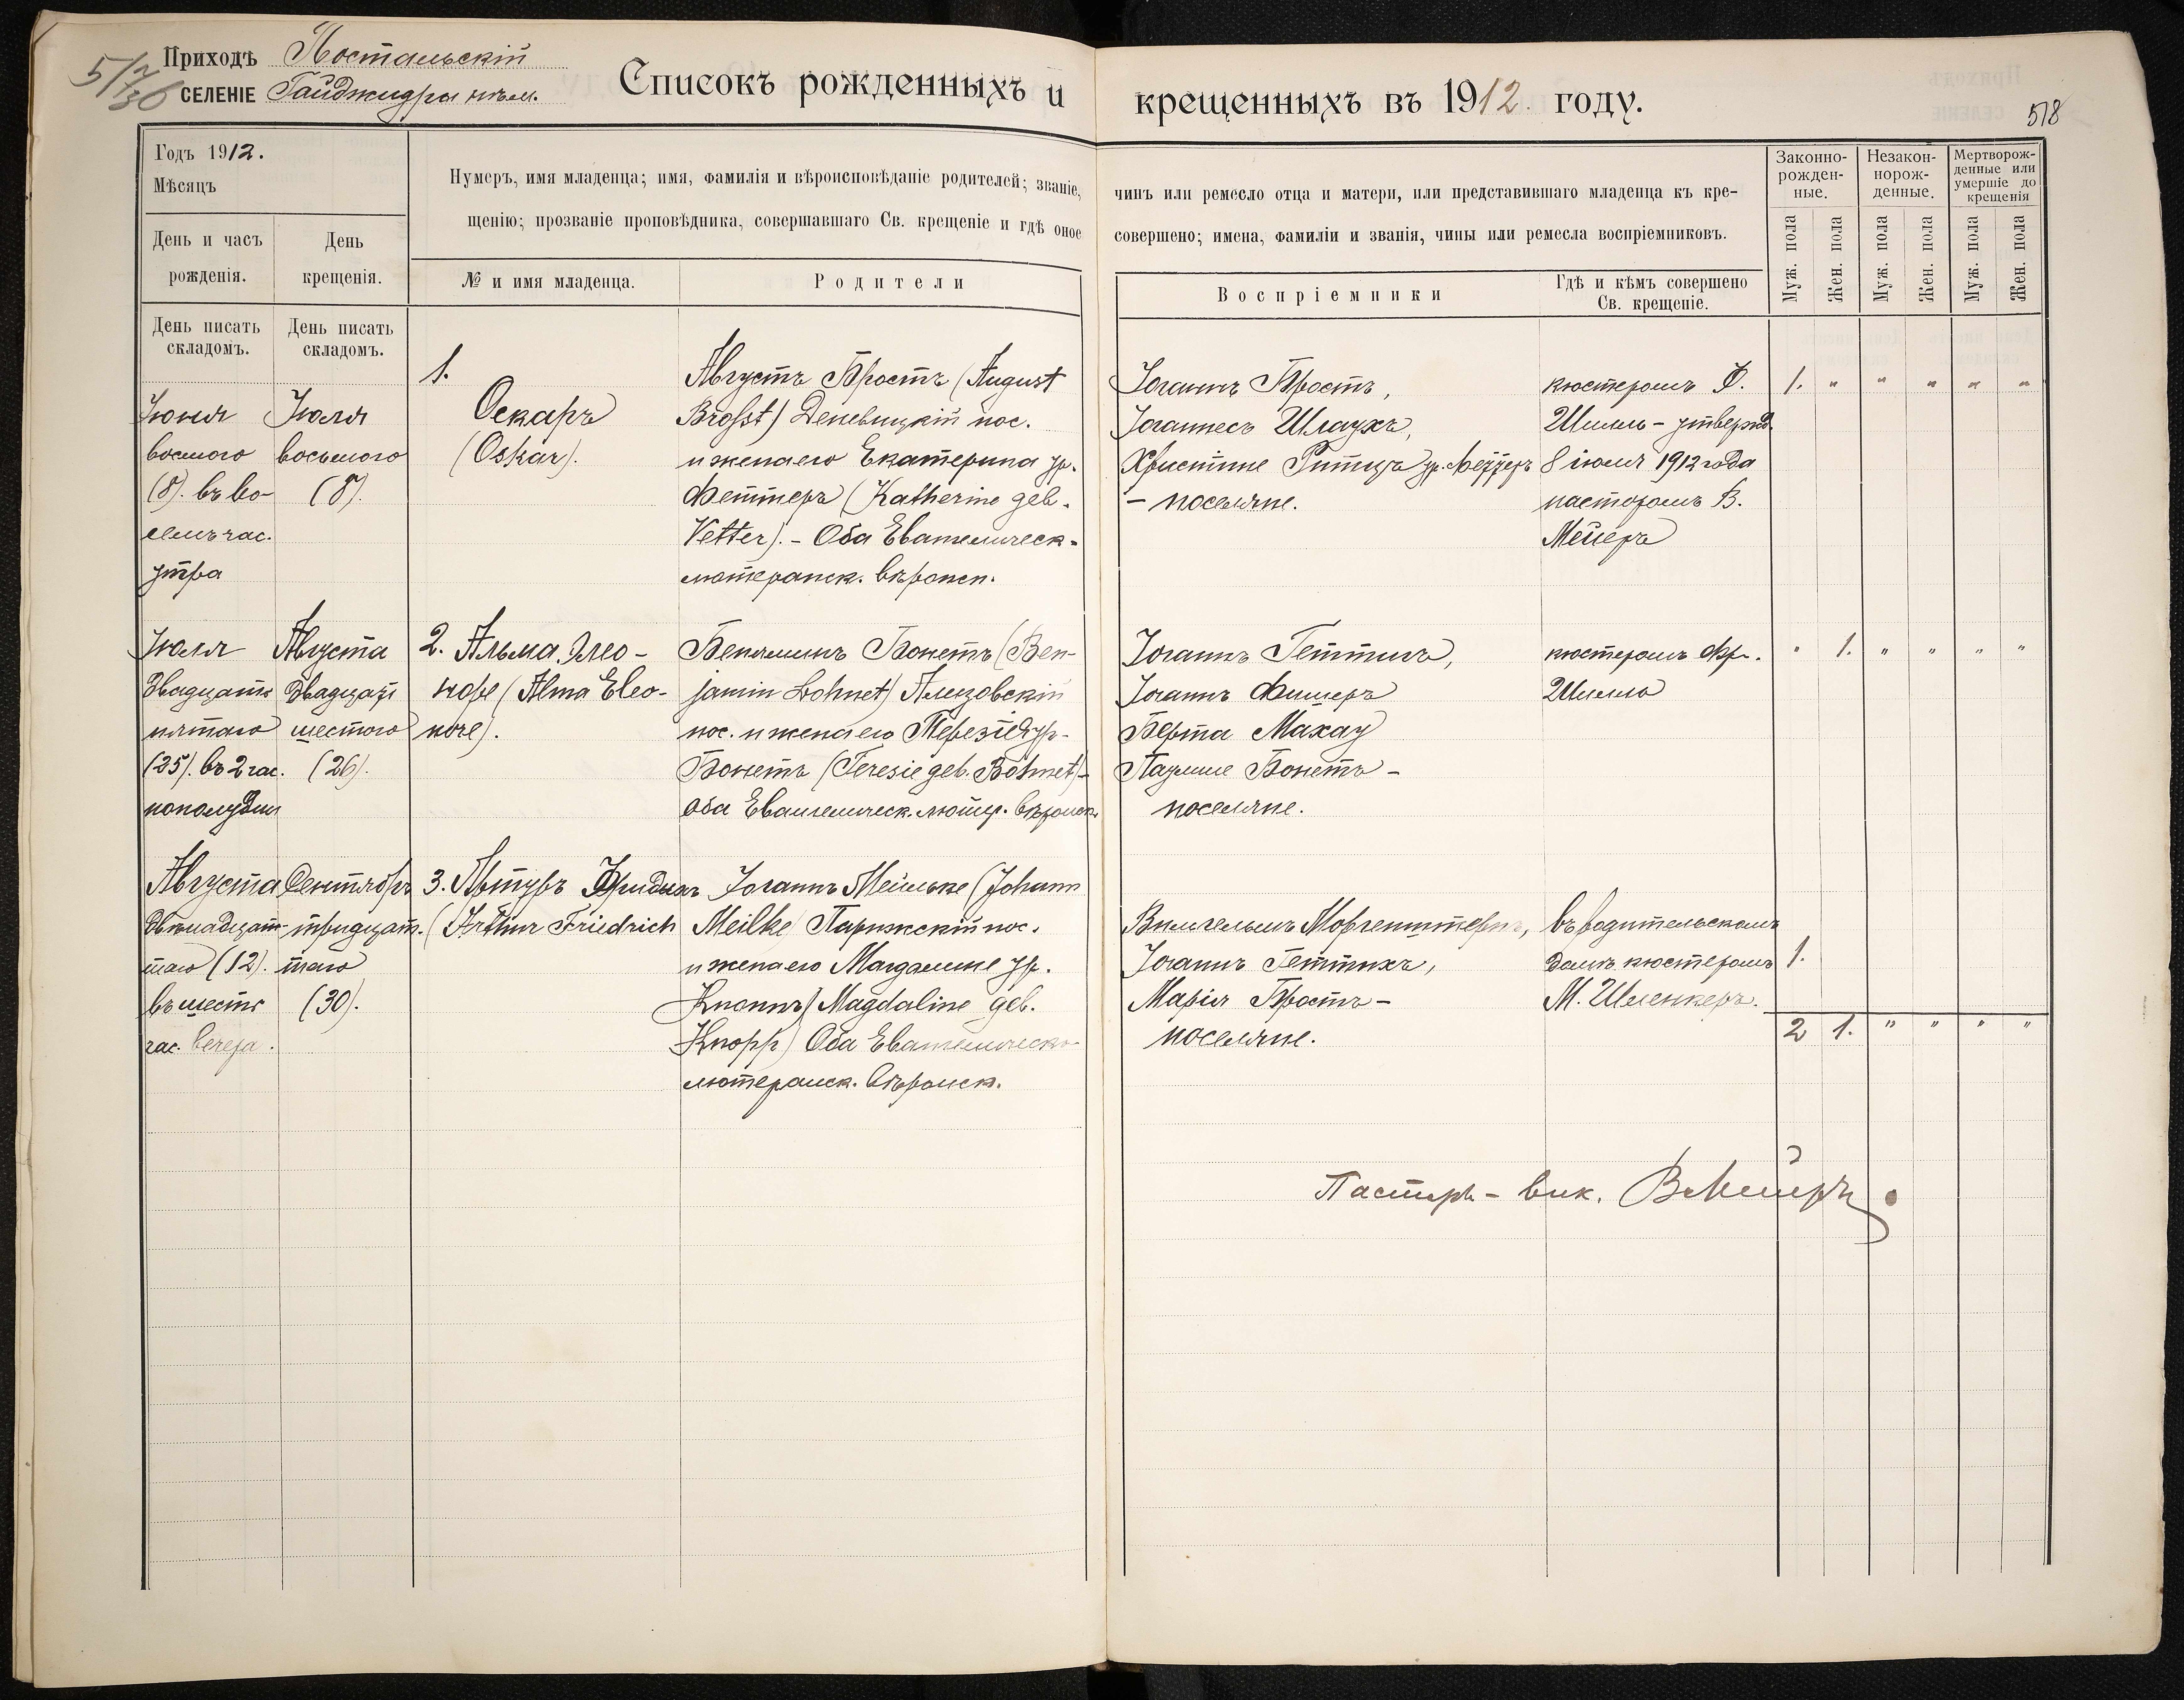 5/7/36
Приходъ Постальскій
СЕЛЕНІЕ Гайджидры нѣм.
Списокъ рожденныхъ и крещенныхъ въ 1912. году.
518
Годъ 1912.
Мѣсяцъ
День и часъ рожденія.
День крещенія.
Нумеръ, имя младенца; имя, фамилія и вѣроисповѣданіе родителей; званіе, чинъ или ремесло отца и матери, или представившаго младенца къ кре-
щенію; прозваніе проповѣдника, совершавшаго Св. крещеніе и гдѣ оное совершено; имена, фамиліи и званія, чины или ремесла воспріемниковъ.
№ и имя младенца.
Родители
Воспріемники
Гдѣ и кѣмъ совершено
Св. крещеніе.
Законно-
рожден-
ные.
Незакон-
норож-
денные.
Мертворож-
денные или
умершіе до
крещенія
Муж. пола
Жен. пола
Муж. пола
Жен. пола
Муж. пола
Жен. пола
День писать
складомъ.
День писать
складомъ.
Іюня
восмого
(8). въ во-
семь час.
утра
Іюля
восьмого
(8).
1.
Оскаръ
(Oskar).
Августъ Бростъ (August
Broſst) Деневицкій пос.
и жена его Екатерина ур.
Феттеръ (Katherine geb.
Vetter). - Оба Евангелическ-
лютеранск. вѣроисп.
Іоганнъ Бростъ,
Іоганнесъ Шлаухъ,
- поселяне.
кюстеромъ Ф.
Шилль - утвержд.
8 іюля 1912 года
пасторомъ В.
Мейеръ
1. " " " " "
Іюля
двадцать
пятаго
(25). въ 2 час.
пополудни
Августа
двадцать
шестого
(26).
2. Альма Элео-
норе (Alma Eleo-
nore).
Беняминъ Бонетъ (Ben-
jamin Bohnet) Алеизовскій
пос. и жена его Терезіе ур.
Бонетъ (Teresie geb. Bohnet) -
оба Евангелическ. лютер. вѣроисп.
Іоганнъ Геттихъ,
Іоганнъ Фишеръ
Берта Махау
Паулине Бонетъ -
поселяне.
кюстеромъ Фр.
Шилль
" 1. " " " "
Августа
двѣнадцат-
таго (12).
въ шесть
час. вечера.
Сентября
тридцат.
таго
(30).
3. Артуръ Фридрихъ
(Arthur Friedrich
Іоганнъ Мейльке (Johann
Meilke) Парижскій пос.
и жена его Магдалине ур.
Кноппъ (Magdaline geb.
Knopp) Оба Евангелическо-
лютеранск. вѣроисп.
Вильгельмъ Моргенштернъ,
Іоганнъ Геттихъ,
Марія Бростъ -
поселяне.
въ родительскомъ
домѣ кюстеромъ
М. Шленкеръ.
1.
2 1. " " " "
Пасторъ - вик. В. Мейеръ.